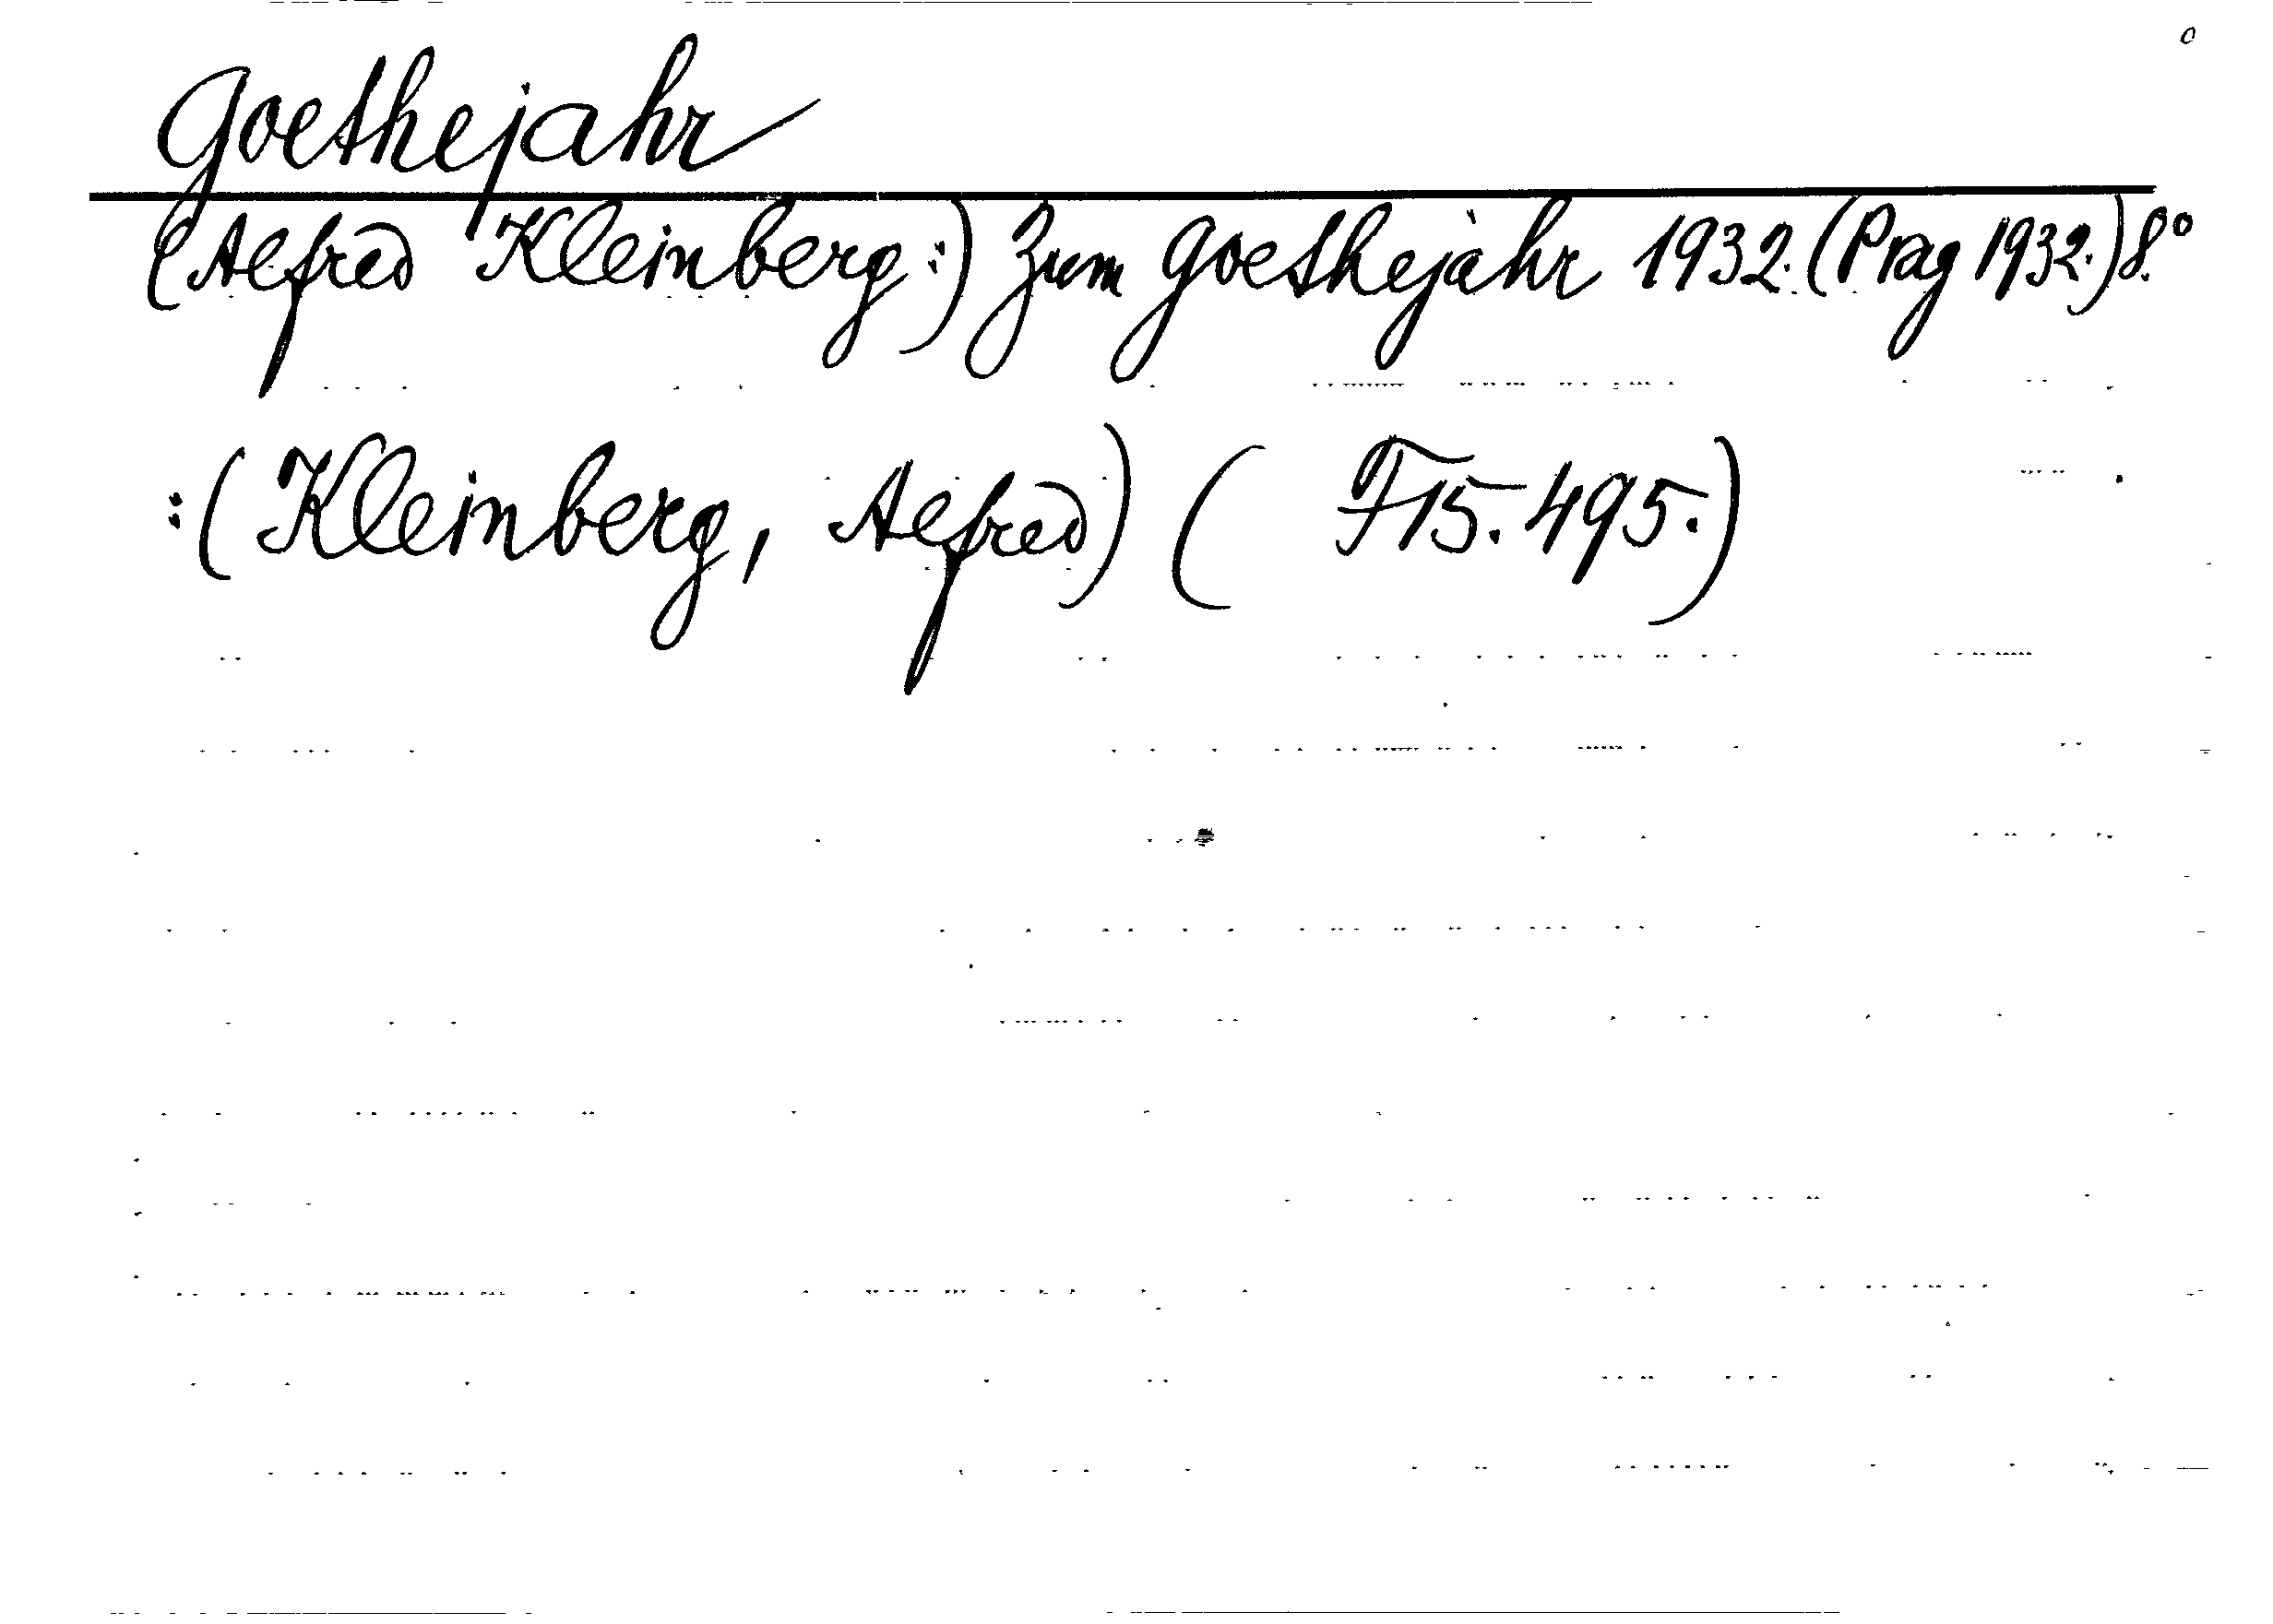 Goethejahr
(Alfred Kleinberg:) Zum Goethejahr 1932. (Prag 1932.) 8.°
:(Kleinberg, Alfred) ( F15.495.)